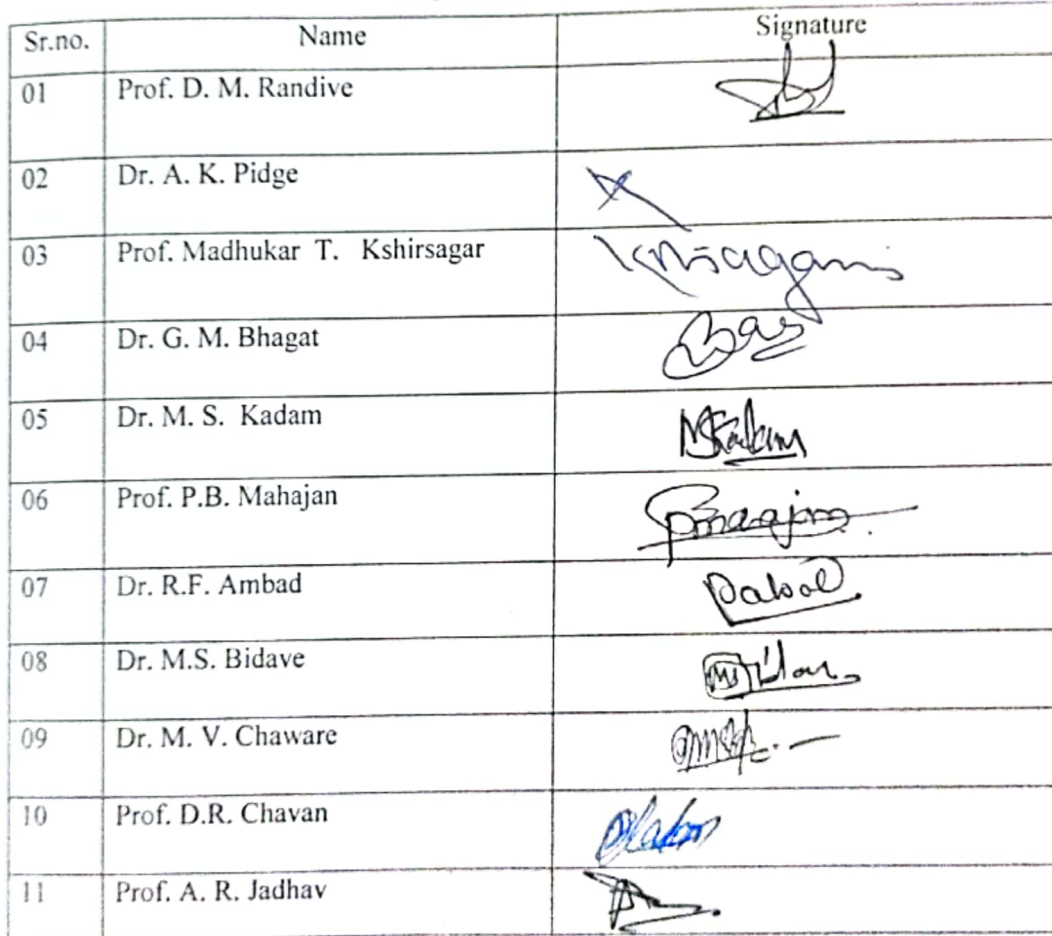 Sr.no. Name Signature
01 Prof. D. M. Randive
02 Dr. A. K. Pidge
03 Prof. Madhukar T. Kshirsagar
04 Dr. G. M. Bhagat
05 Dr. M. S. Kadam MSKadam
06 Prof. P.B. Mahajan
07 Dr. R.F. Ambad
08 Dr. M.S. Bidave
09 Dr. M. V. Chaware
10 Prof. D.R. Chavan
11 Prof. A. R. Jadhav